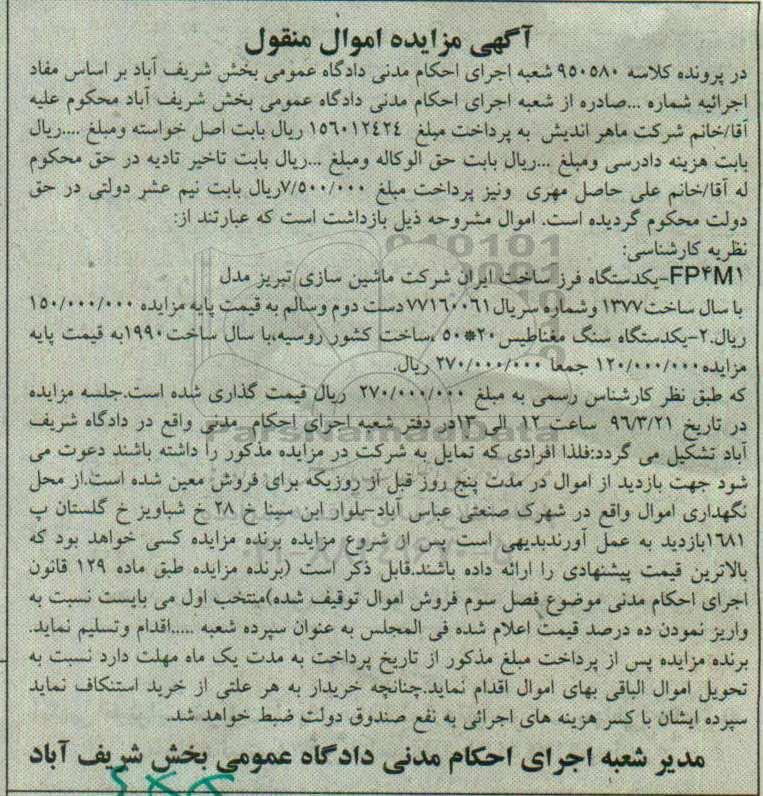 آگهی مزایده اموال منقول
در پرونده کلاسه ۹۵۰۵۸۰ شعبه اجرای احکام مدنی دادگاه عمومی بخش شریف آباد بر اساس مفاد
اجرائیه شماره ...صادره از شعبه اجرای احکام مدنی دادگاه عمومی بخش شریف آباد محکوم علیه
آقا/خانم شرکت ماهر اندیش به پرداخت مبلغ ۱۵۶۰۱۲۴۲۴ ریال بابت اصل خواسته ومبلغ ....ریال
بابت هزینه دادرسی ومبلغ ...ریال بابت حق الوکاله ومبلغ ...ریال بابت تاخیر تادیه در حق محکوم
له آقا/خانم علی حاصل مهری ونیز پرداخت مبلغ ۷/۵۰۰/۰۰۰ریال بابت نیم عشر دولتی در حق
دولت محکوم گردیده است. اموال مشروحه ذیل بازداشت است که عبارتند از:
نظریه کارشناسی:
FP۴M۱-یکدستگاه فرز ساخت ایران شرکت ماشین سازی تبریز مدل
با سال ساخت۱۳۷۷ وشماره سریال۷۷۱۶۰۰۶۱دست دوم وسالم به قیمت پایه مزایده ۱۵۰/۰۰۰/۰۰۰
ریال.۲-یکدستگاه سنگ مغناطیس۲۰*۵۰ ،ساخت کشور روسیه،با سال ساخت۱۹۹۰به قیمت پایه
مزایده۱۲۰/۰۰۰/۰۰۰ جمعا ۲۷۰/۰۰۰/۰۰۰ ریال.
که طبق نظر کارشناس رسمی به مبلغ ۲۷۰/۰۰۰/۰۰۰ ریال قیمت گذاری شده است.جلسه مزایده
در تاریخ ۹۶/۳/۲۱ ساعت ۱۲ الی ۱۳در دفتر شعبه اجرای احکام مدنی واقع در دادگاه شریف
آباد تشکیل می گردد:فلذا افرادی که تمایل به شرکت در مزایده مذکور را داشته باشند دعوت می
شود جهت بازدید از اموال در مدت پنج روز قبل از روزیکه برای فروش معین شده است.از محل
نگهداری اموال واقع در شهرک صنعتی عباس آباد-بلوار ابن سینا خ ۲۸ خ شباویز خ گلستان پ
۱۶۸۱بازدید به عمل آورندبدیهی است پس از شروع مزایده برنده مزایده کسی خواهد بود که
بالاترین قیمت پیشنهادی را ارائه داده باشند.قابل ذکر است (برنده مزایده طبق ماده ۱۲۹ قانون
اجرای احکام مدنی موضوع فصل سوم فروش اموال توقیف شده)منتخب اول می بایست نسبت به
واریز نمودن ده درصد قیمت اعلام شده فی المجلس به عنوان سپرده شعبه .....اقدام وتسلیم نماید.
برنده مزایده پس از پرداخت مبلغ مذکور از تاریخ پرداخت به مدت یک ماه مهلت دارد نسبت به
تحویل اموال الباقی بهای اموال اقدام نماید.چنانچه خریدار به هر علتی از خرید استنکاف نماید
سپرده ایشان با کسر هزینه های اجرائی به نفع صندوق دولت ضبط خواهد شد.
مدیر شعبه اجرای احکام مدنی دادگاه عمومی بخش شریف آباد
ParsNamadData